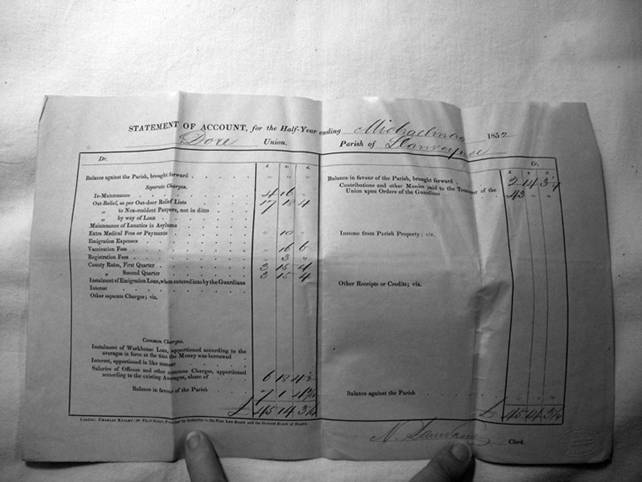 STATEMENT OF ACCOUNT, for the Half-Year ending Michaelmas 1852
Dore Union. Parish of
Dr. Cr.
£ s. d. £ s. d.
Balance against the Parish, brought forward
Separate Charges.
In-Maintenance 4 16
Out-Relief, as per Out-door Relief Lists 17 12 4
„ to Non-resident Paupers, not in ditto
„ by way of Loan
Maintenance of Lunatics in Asylums
Extra Medical Fees or Payments 10
Emigration Expenses
Vaccination Fees 16 6
Registration Fees 3
County Rates, First Quarter 3 15 4
„ Second Quarter 3 15 4
Instalment of Emigration Loan, when entered into by the Guardians
Interest
Other separate Charges; viz.
Common Charges.
Instalment of Workhouse Loan, apportioned according to the
averages in force at the time the Money was borrowed
Interest, apportioned in like manner
Salaries of Officers and other common Charges, apportioned
according to the existing Averages, share of
Balance in favour of the Parish
£ 45 14 3
Balance in favour of the Parish, brought forward 2 14 3
Contributions and other Monies paid to the Treasurer of the
Union upon Orders of the Guardians 43
Income from Parish Property; viz.
Other Receipts or Credits; viz.
Balance against the Parish
£ 45 14 3
Clerk.